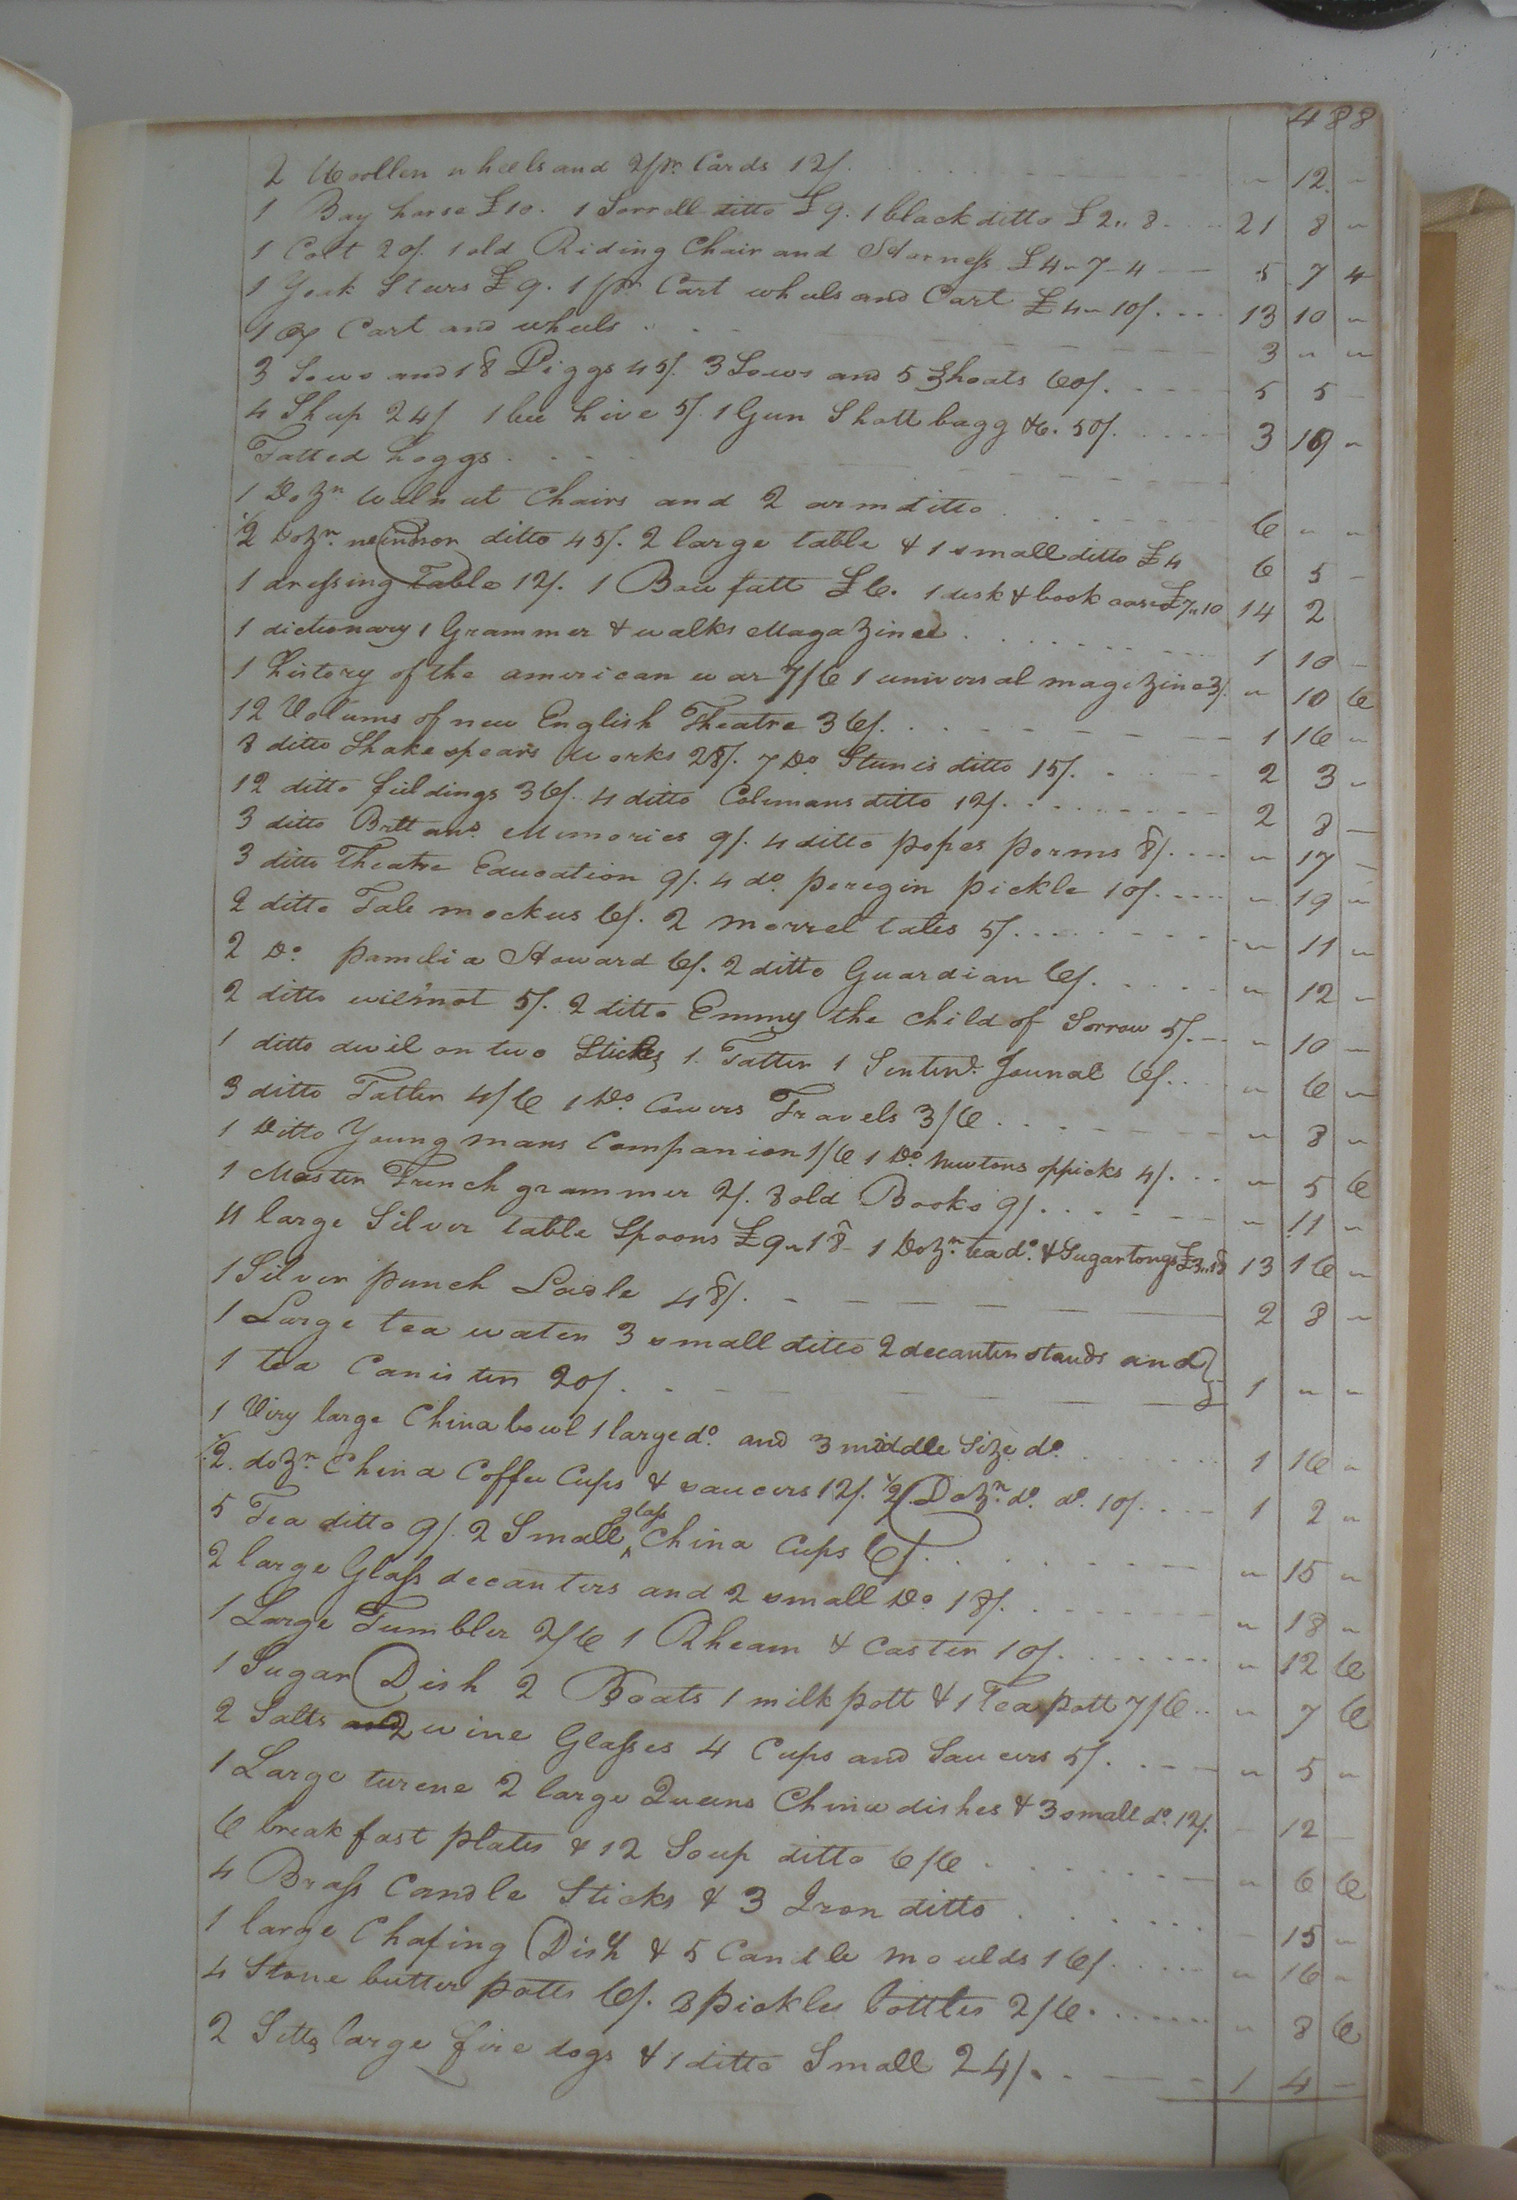 488
2 Woollen wheels and 2 pr. Cards 12/. " 12 "
1 Bay horse £10. 1 Sorrell ditto £9. 1 black ditto £2.. 8 21 8 "
1 Colt 20/. 1 old Riding Chair and Harness £4-7-4 5 7 4
1 Yoak Steers £9. 1 pr. Cart wheels and Cart £4-10/. 13 10 "
1 Ox Cart and wheels 3 " "
3 Sows and 18 Piggs 45/. 3 Sows and 5 Shoats 60/. 5 5 -
4 Sheep 24/ 1 bee hive 5/. 1 Gun Shott bagg &c. 50/. 3 19 "
Fatted hoggs
1 Dozn. walnut Chairs and 2 arm ditto 6 " "
1/2 Dozn. windsor ditto 45/. 2 large table & 1 small ditto £4 6 5 -
1 dressing Table 12/. 1 Bow fatt £6. 1 desk & book case £7..10 14 2
1 dictionary 1 Grammer & walks Magazines 1 10 -
1 history of the american war 7/6 1 universal magizine 3/. " 10 6
12 Volums of new English Theatre 36/. 1 16 "
8 ditto Shakespears Works 28/. 7 Do. Sturns ditto 15/. 2 3 "
12 ditto fieldings 36/. 4 ditto Colemans ditto 12/. 2 8 -
3 ditto Brttans. Memories 9/. 4 ditto popes poems 8/. " 17 -
3 ditto Theatre Education 9/. 4 do. peregin pickle 10/. " 19 "
2 ditto Fale mockus 6/. 2 morrel tales 5/. " 11 "
2 Do. pamelia Howard 6/. 2 ditto Guardian 6/. " 12 "
2 ditto wilmot 5/. 2 ditto Emmy the child of Sorrow 5/. " 10 -
1 ditto devil on two Sticks 1 Tatter 1 Sentend. Jounal 6/. " 6 "
3 ditto Tatler 4/6 1 Do. Cowers Travels 3/6 " 8 "
1 Ditto Young mans Companion 1/6 1 Do. Newtons oppicks 4/. " 5 6
1 Master French grammer 2/. 3 old Books 9/. " 11 "
11 large Silver table Spoons £9"18 - 1 Dozn. tea do. & Sugar tongs £3..18 13 16 "
1 Silver punch Ladle 48/. 2 8 "
1 Large tea waten 3 small ditto 2 decanter stands and
1 tea Canister 20/. 1 " "
1 Very large China bowl 1 large do. and 3 middle Size do. 1 16 "
1/2. dozn. China Coffee Cups & saucers 12/. 1/2 Dozn. do. do. 10/. 1 2 "
5 Tea ditto 9/. 2 Small glass China Cups 6/. " 15 "
2 large Glass decanters and 2 small Do. 18/. " 18 "
1 Large Tumbler 2/6 1 Rheam & Caster 10/. " 12 6
1 Sugar Dish 2 Boats 1 milk pott & 1 Tea pott 7/6 " 7 6
2 Salts and 2 wine Glasses 4 Cups and Saucers 5/. " 5 "
1 Large turene 2 large Queens China dishes & 3 small do. 12/. - 12 -
6 breakfast plates & 12 Soup ditto 6/6 " 6 6
4 Brass Candle Sticks & 3 Iron ditto - 15 "
1 large Chafing Dish & 5 Candle moulds 16/. " 16 "
4 Stone butter potts 6/. 3 pickles bottles 2/6 " 8 6
2 Setts large fire dogs & 1 ditto Small 24/. 1 4 -